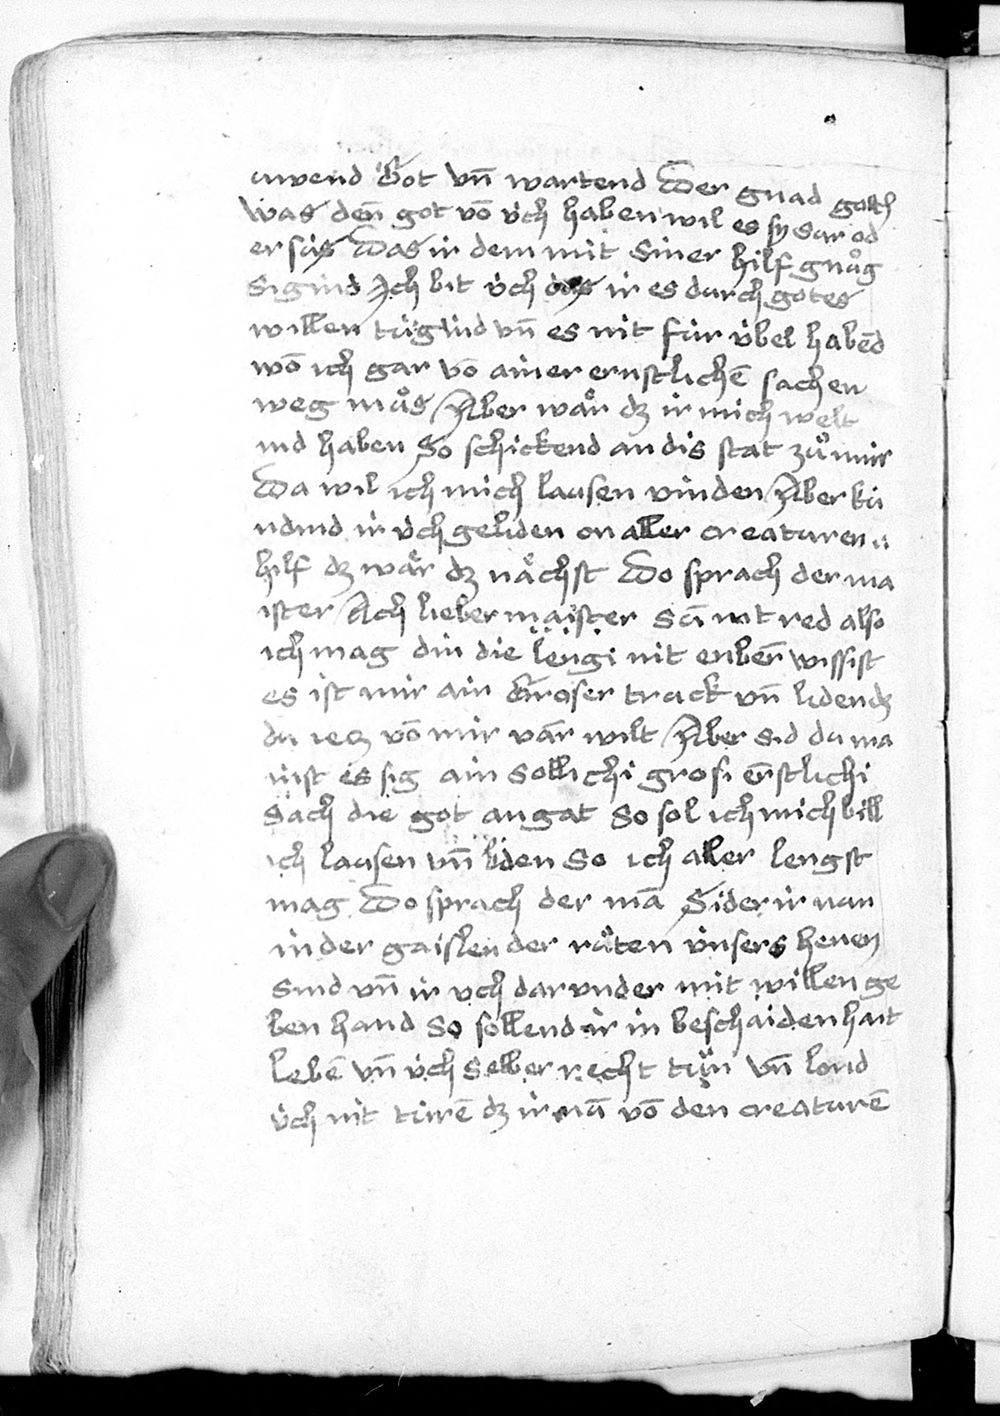 uwend Got vn̄ wartend Der gnad gottes
Was den̄ got vō v̇ch haben wil es sy sur od
er süs Das ir dem mit siner hilf gnůg
sigind Ich bit v̇ch das ir es durch gotes
willen tügind vn̄ es nit für v̇bel habēd
wō ich gar vō ainer ernstlichē sachen
weg můs Aber wår dz ir mich welt
ind haben So schickend an dis stat zů mir
Da wil ich mich lausen vinden Aber kü
ndind ir v̇ch geliden on aller creaturen
hilf dz wår dz nåchst Do sprach der ma
ister Ach lieber maister Sā nit red also
ich mag din die lengi nit enbern̄ wissist
es ist mir ain Groser truck vn̄ liden dz
du iecz vō mir varn̄ wilt Aber sid du ma
inst es sig ain sollichi grosi ern̄stlichi
Sach die got angat So sol ich mich bill
ich lausen vn̄ liden So ich aller lengst
mag Do sprach der mā Sider ir nun
in der gaislen der råten v̇nsers heren
Sind vn̄ ir vch dar vnder mit willen ge
ben hand So sollend ir in beschaidenhait
lebē vn̄ v̇ch selber recht tůn vn̄ lond
v̇ch nit türē dz ir nū vō den creaturē